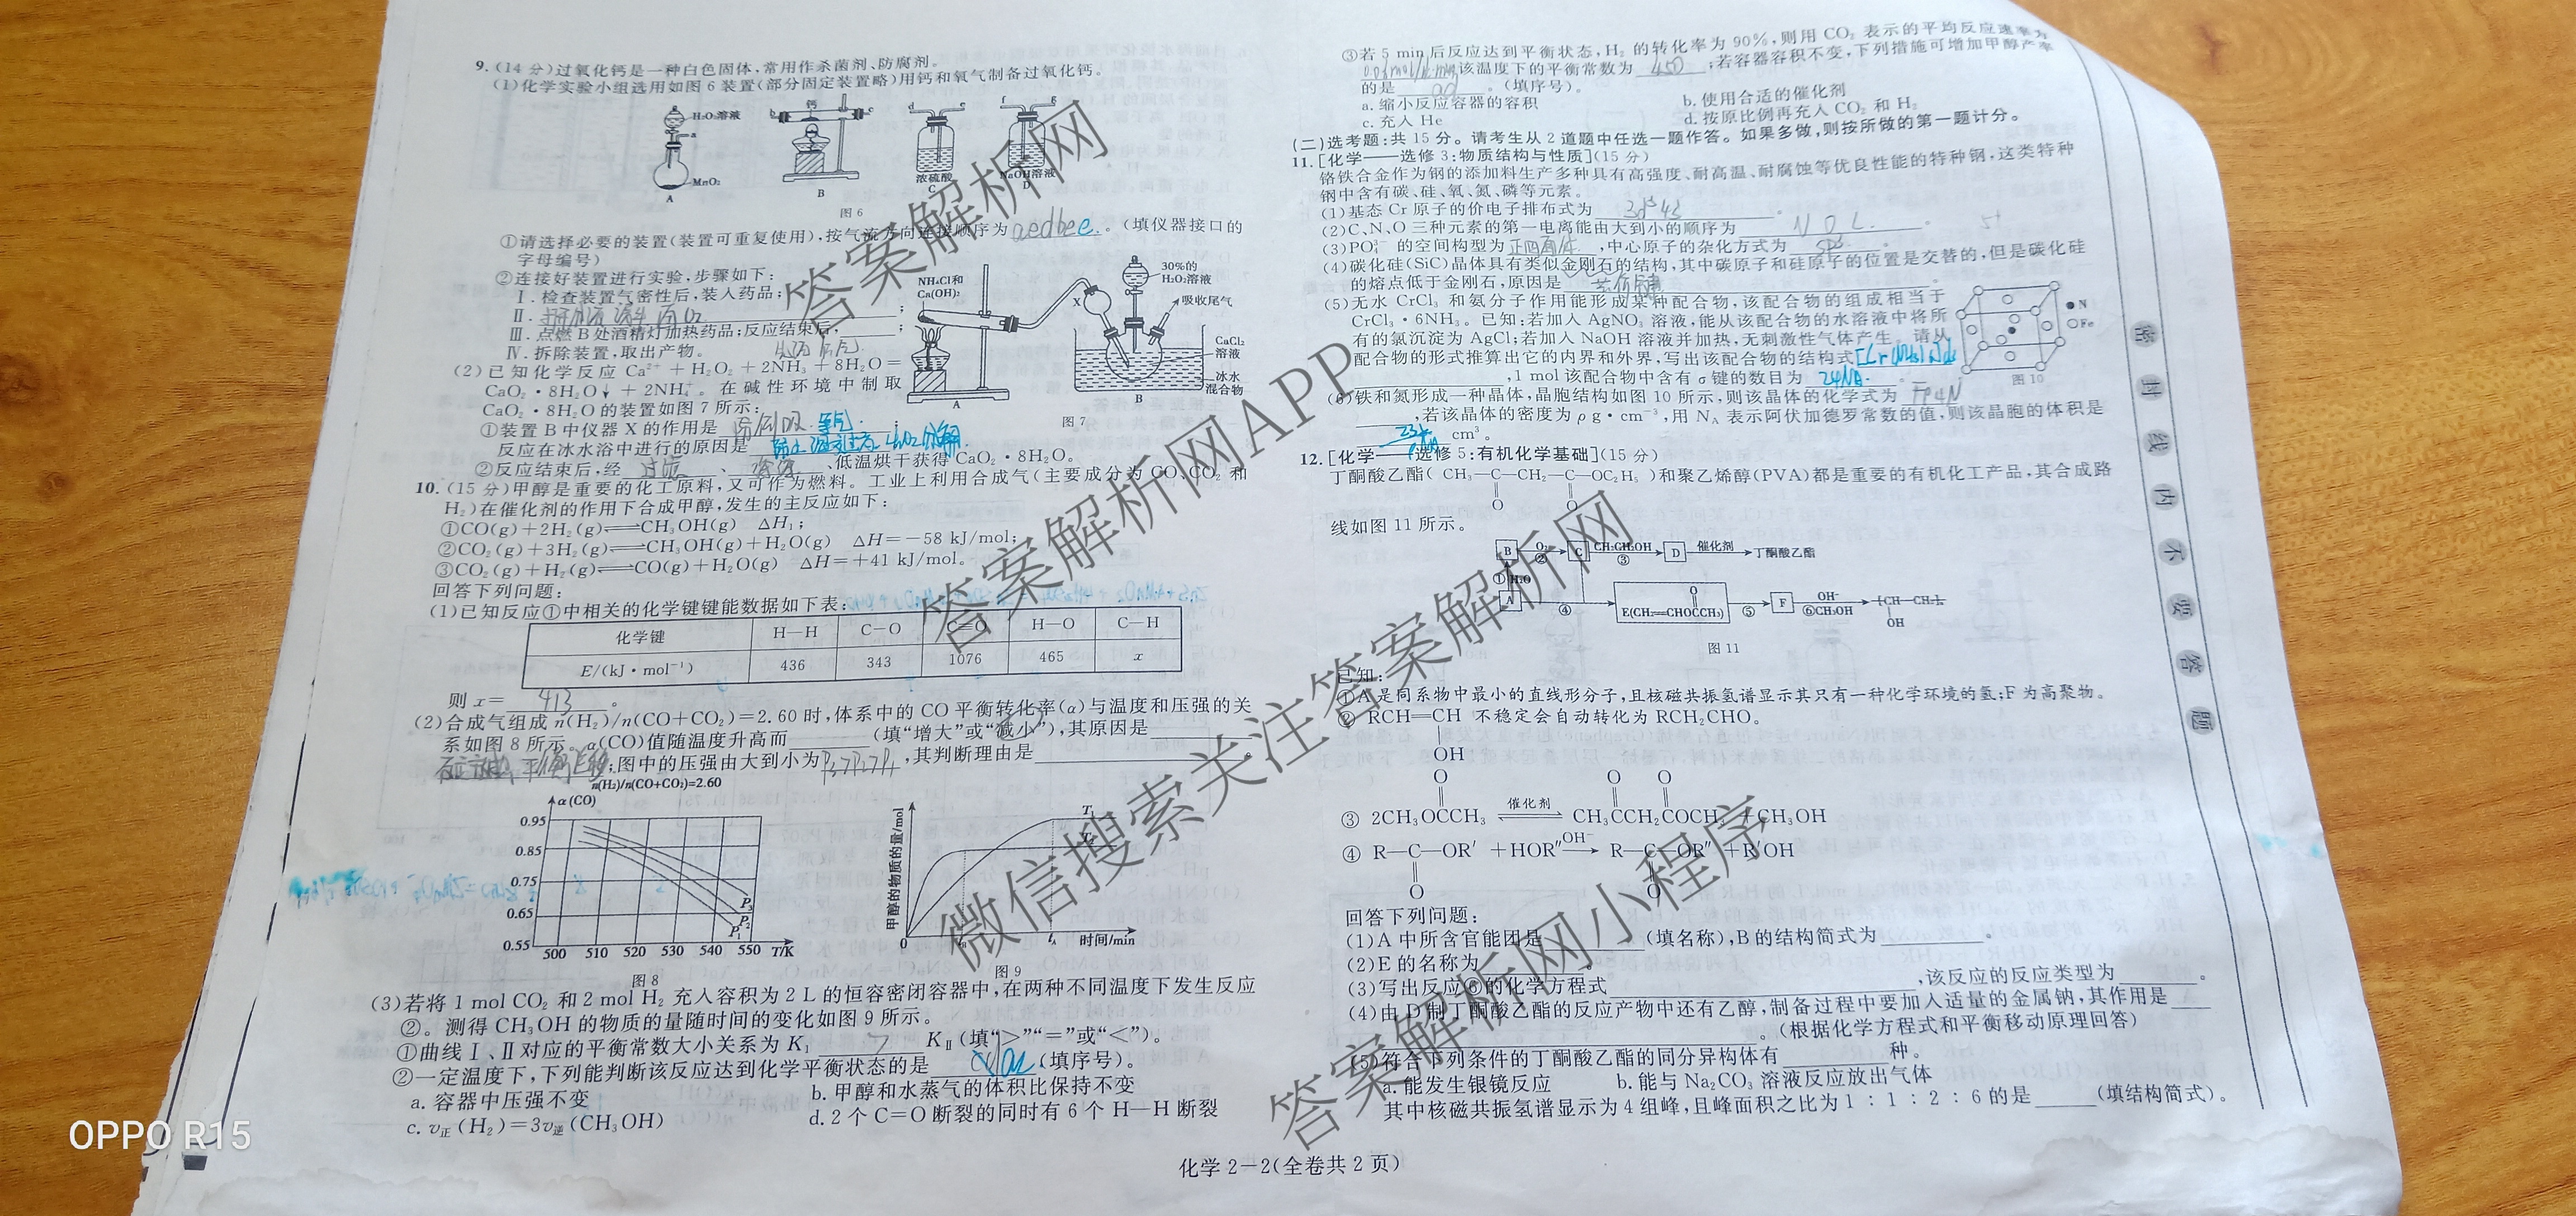 9.(14分)过氧化钙是一种白色固体,常用作杀菌剂、防腐剂。
(1)化学实验小组选用如图6装置(部分固定装置略)用钙和氧气制备过氧化钙。
H₂O₂溶液
a
MnO₂
A
钙
b
c
B
d
e
浓硫酸
C
f
g
NaOH溶液
D
图6
①请选择必要的装置(装置可重复使用),按气流方向连接顺序为aedbee。(填仪器接口的
字母编号)
②连接好装置进行实验,步骤如下:
Ⅰ.检查装置气密性后,装入药品;
Ⅱ.
Ⅲ.点燃B处酒精灯加热药品;反应结束后,
Ⅳ.拆除装置,取出产物。
NH₄Cl和
Ca(OH)₂
X
30%的
H₂O₂溶液
吸收尾气
CaCl₂
溶液
冰水
混合物
A
B
图7
(2)已知化学反应 Ca²⁺+H₂O₂+2NH₃+8H₂O=
CaO₂·8H₂O↓+2NH₄⁺。在碱性环境中制取
CaO₂·8H₂O的装置如图7所示:
①装置B中仪器X的作用是 防倒吸 ;
反应在冰水浴中进行的原因是 防止温度过高H₂O₂分解
②反应结束后,经 过滤 、 、低温烘干获得CaO₂·8H₂O。
10.(15分)甲醇是重要的化工原料,又可作为燃料。工业上利用合成气(主要成分为CO、CO₂和
H₂)在催化剂的作用下合成甲醇,发生的主反应如下:
①CO(g)+2H₂(g)⇌CH₃OH(g) ΔH₁;
②CO₂(g)+3H₂(g)⇌CH₃OH(g)+H₂O(g) ΔH=−58 kJ/mol;
③CO₂(g)+H₂(g)⇌CO(g)+H₂O(g) ΔH=+41 kJ/mol。
回答下列问题:
(1)已知反应①中相关的化学键键能数据如下表:
化学键 H—H C—O C≡O H—O C—H
E/(kJ·mol⁻¹) 436 343 1076 465 x
则x= 413 。
(2)合成气组成n(H₂)/n(CO+CO₂)=2.60时,体系中的CO平衡转化率(α)与温度和压强的关
系如图8所示。α(CO)值随温度升高而 (填“增大”或“减小”),其原因是
;图中的压强由大到小为P₃>P₂>P₁,其判断理由是 。
n(H₂)/n(CO+CO₂)=2.60
α(CO)
0.95
0.85
0.75
0.65
0.55
500 510 520 530 540 550 T/K
P₃
P₂
P₁
图8
甲醇的物质的量/mol
0
时间/min
图9
(3)若将1 mol CO₂和2 mol H₂充入容积为2 L的恒容密闭容器中,在两种不同温度下发生反应
②。测得CH₃OH的物质的量随时间的变化如图9所示。
①曲线Ⅰ、Ⅱ对应的平衡常数大小关系为K_Ⅰ > K_Ⅱ(填“>”“=”或“<”)。
②一定温度下,下列能判断该反应达到化学平衡状态的是 ac (填序号)。
a.容器中压强不变
b.甲醇和水蒸气的体积比保持不变
c.v正(H₂)=3v逆(CH₃OH)
d.2个C=O断裂的同时有6个H—H断裂
③若5 min后反应达到平衡状态,H₂的转化率为90%,则用CO₂表示的平均反应速率为
,该温度下的平衡常数为 450 ;若容器容积不变,下列措施可增加甲醇产率
的是 ad 。(填序号)。
a.缩小反应容器的容积
b.使用合适的催化剂
c.充入He
d.按原比例再充入CO₂和H₂
(二)选考题:共15分。请考生从2道题中任选一题作答。如果多做,则按所做的第一题计分。
11.[化学——选修3:物质结构与性质](15分)
铬铁合金作为钢的添加料生产多种具有高强度、耐高温、耐腐蚀等优良性能的特种钢,这类特种
钢中含有碳、硅、氧、氮、磷等元素。
(1)基态Cr原子的价电子排布式为 。
(2)C、N、O三种元素的第一电离能由大到小的顺序为 。
(3)PO₄³⁻的空间构型为 正四面体 ,中心原子的杂化方式为 sp3 。
(4)碳化硅(SiC)晶体具有类似金刚石的结构,其中碳原子和硅原子的位置是交替的,但是碳化硅
的熔点低于金刚石,原因是 共价键 。
(5)无水CrCl₃和氨分子作用能形成某种配合物,该配合物的组成相当于
CrCl₃·6NH₃。已知:若加入AgNO₃溶液,能从该配合物的水溶液中将所
有的氯沉淀为AgCl;若加入NaOH溶液并加热,无刺激性气体产生。请从
配合物的形式推算出它的内界和外界,写出该配合物的结构式
,1 mol该配合物中含有σ键的数目为 24NA 。
N
Fe
图10
(6)铁和氮形成一种晶体,晶胞结构如图10所示,则该晶体的化学式为 Fe4N
,若该晶体的密度为ρ g·cm⁻³,用N_A表示阿伏加德罗常数的值,则该晶胞的体积是
cm³。
12.[化学——选修5:有机化学基础](15分)
丁酮酸乙酯( CH₃—C—CH₂—C—OC₂H₅ )和聚乙烯醇(PVA)都是重要的有机化工产品,其合成路
O O
线如图11所示。
B O₂ ② C CH₃CH₂OH ③ D 催化剂 丁酮酸乙酯
① H₂O
A ④ E(CH₂=CHOCCH₃) ⑤ F OH⁻ ⑥CH₃OH [CH—CH₂]ₙ
O
OH
图11
已知:
①A是同系物中最小的直线形分子,且核磁共振氢谱显示其只有一种化学环境的氢;F为高聚物。
② RCH=CH 不稳定会自动转化为RCH₂CHO。
OH
O O O
③ 2CH₃OCCH₃ 催化剂⇌ CH₃CCH₂COCH₃+CH₃OH
④ R—C—OR′+HOR″ OH⁻→ R—C—OR″+R′OH
O O
回答下列问题:
(1)A中所含官能团是 (填名称),B的结构简式为 。
(2)E的名称为 。
(3)写出反应⑥的化学方程式 ,该反应的反应类型为 。
(4)由D制丁酮酸乙酯的反应产物中还有乙醇,制备过程中要加入适量的金属钠,其作用是
。(根据化学方程式和平衡移动原理回答)
(5)符合下列条件的丁酮酸乙酯的同分异构体有 种。
a.能发生银镜反应
b.能与Na₂CO₃溶液反应放出气体
其中核磁共振氢谱显示为4组峰,且峰面积之比为1:1:2:6的是 (填结构简式)。
化学2-2(全卷共2页)
密封线内不要答题
答案解析网
微信搜索关注答案解析网
答案解析网APP
答案解析网小程序
OPPO R15